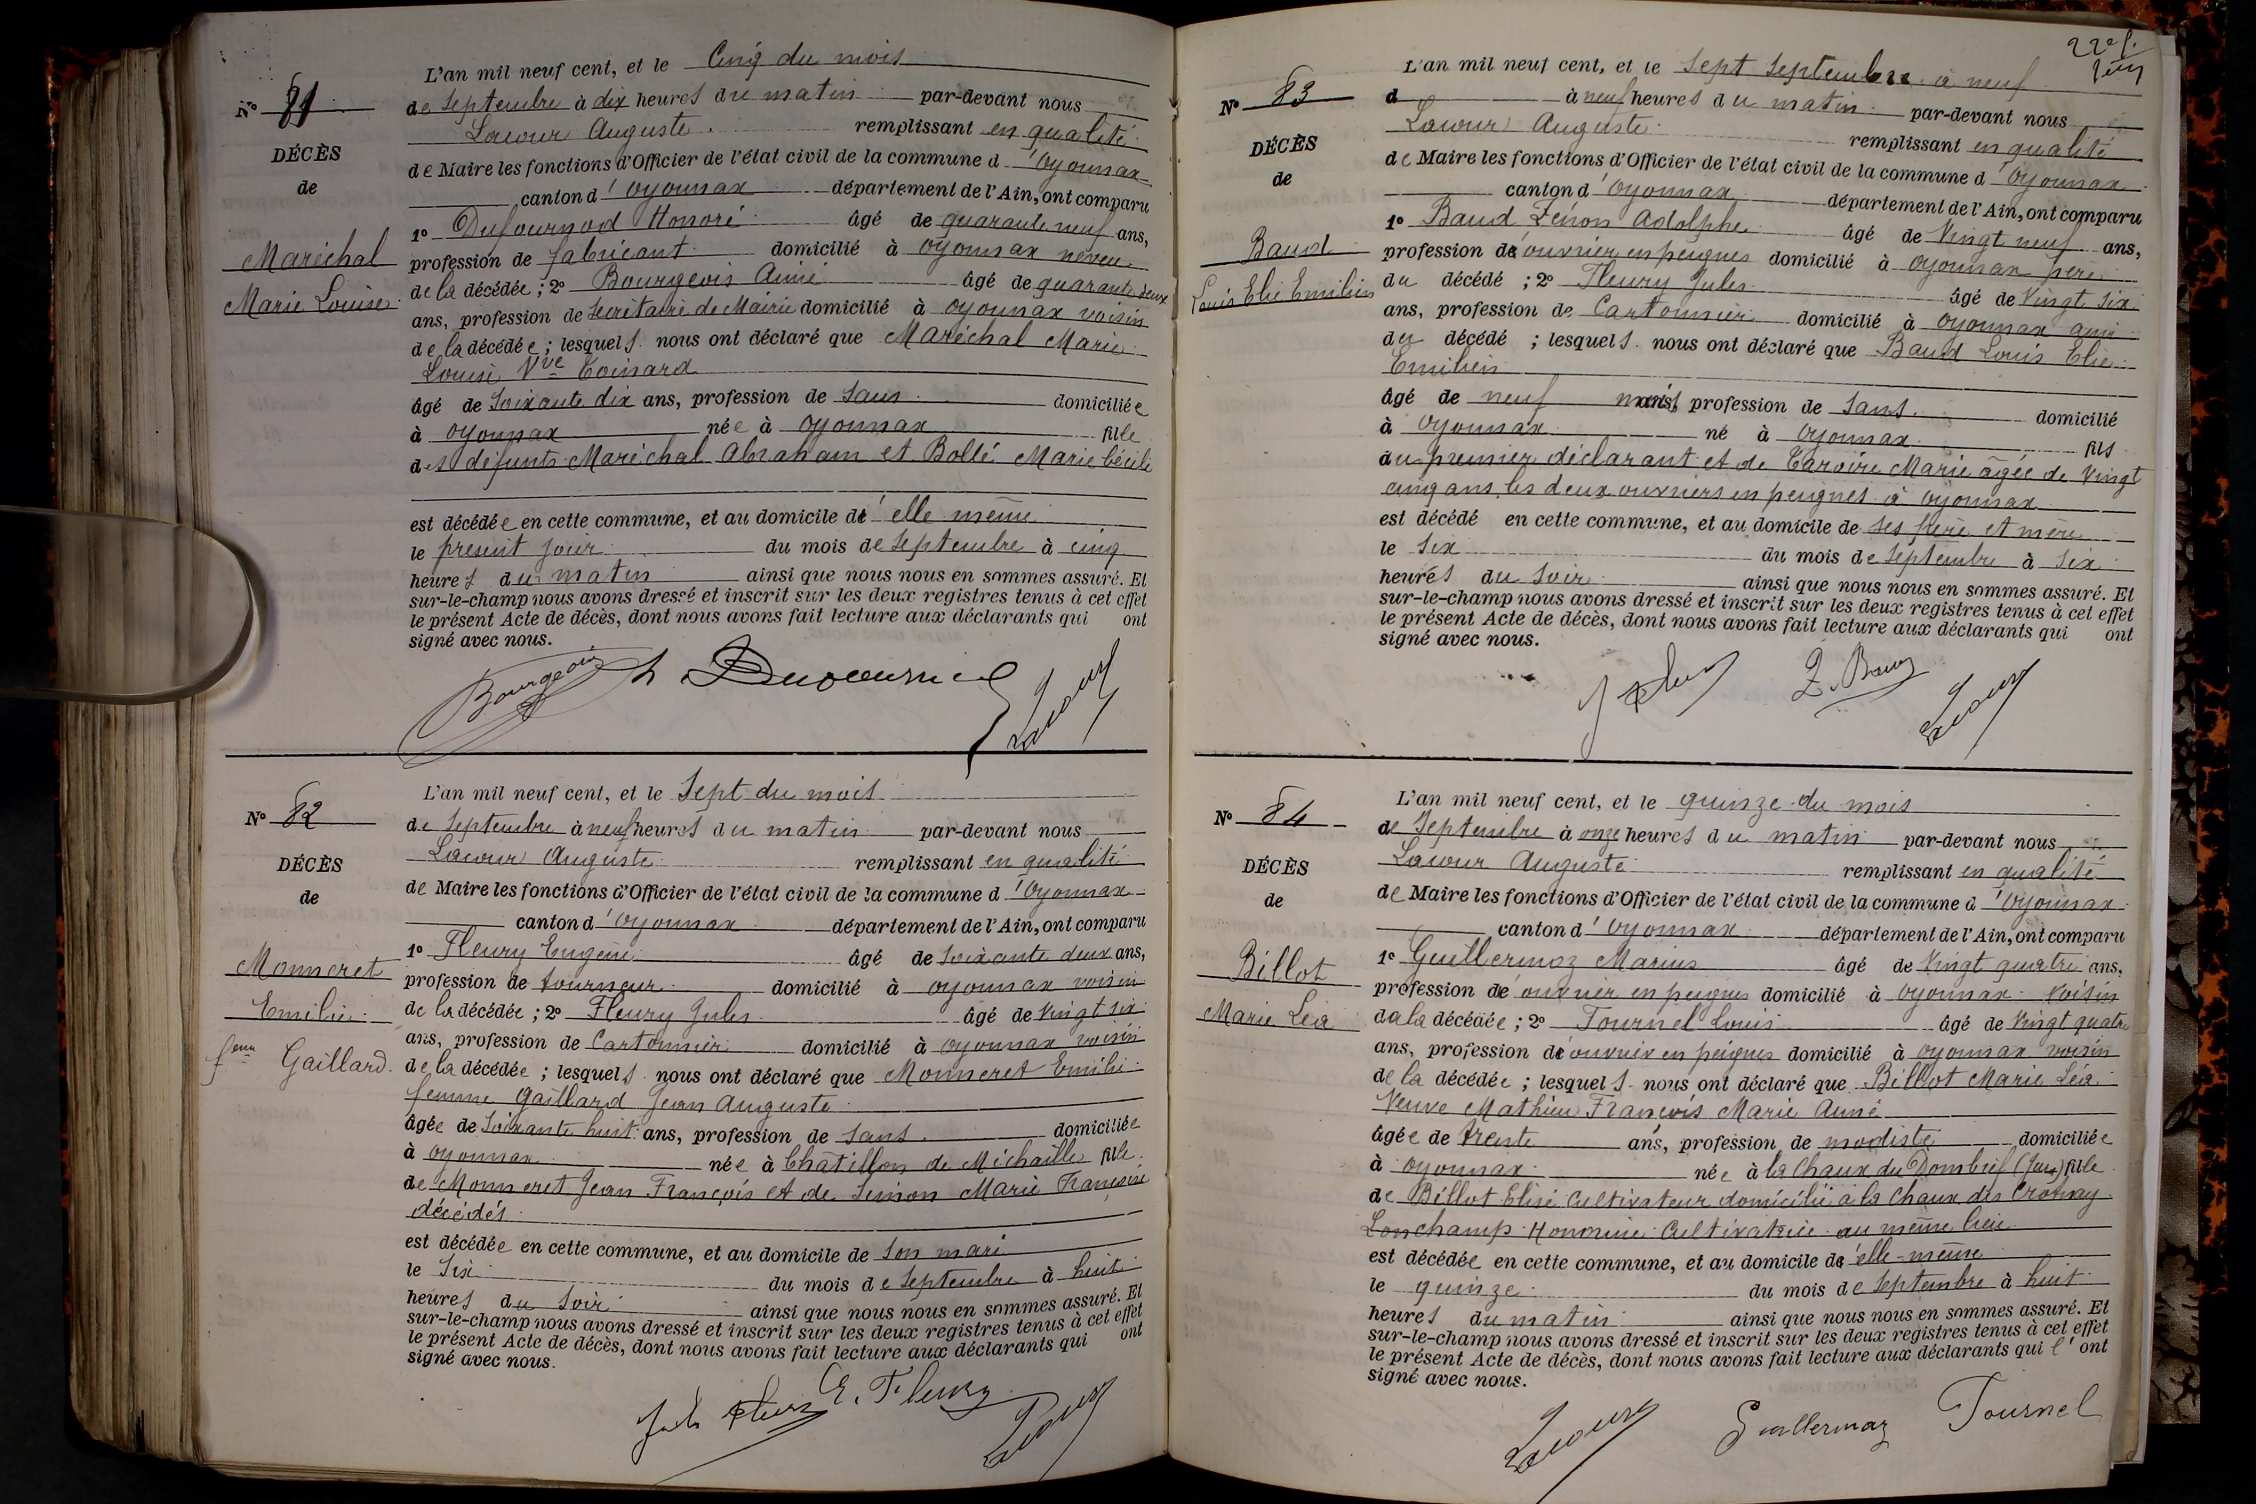 N° 81
DÉCÈS
de
Maréchal
Marie Louise
L'an mil neuf cent, et le Cinq du mois
de Septembre à dix heures du matin par-devant nous
Lacour Auguste remplissant en qualité
de Maire les fonctions d'Officier de l'état civil de la commune d'Oyonnax
canton d'Oyonnax département de l'Ain, ont comparu
1° Dufournod Honoré âgé de quarante neuf ans,
profession de fabricant domicilié à Oyonnax neveu
de la décédée ; 2° Bourgeois Aimé âgé de quarante deux
ans, profession de Secrétaire de Mairie domicilié à Oyonnax voisin
de la décédée ; lesquels nous ont déclaré que Maréchal Marie
Louise Vve Coinard
âgé de Soixante dix ans, profession de Sans domiciliée
à Oyonnax née à Oyonnax fille
des défunts Maréchal Abraham et Bollé Marie Cécile
est décédée en cette commune, et au domicile d'elle même
le présent jour du mois de Septembre à cinq
heures du matin ainsi que nous nous en sommes assuré. Et
sur-le-champ nous avons dressé et inscrit sur les deux registres tenus à cet effet
le présent Acte de décès, dont nous avons fait lecture aux déclarants qui ont
signé avec nous.
Bourgeois Lacour
N° 82
DÉCÈS
de
Monneret
Emilie
fem Gaillard
L'an mil neuf cent, et le Sept du mois
de Septembre à neuf heures du matin par-devant nous
Lacour Auguste remplissant en qualité
de Maire les fonctions d'Officier de l'état civil de la commune d'Oyonnax
canton d'Oyonnax département de l'Ain, ont comparu
1° Fleury Eugène âgé de Soixante deux ans,
profession de tourneur domicilié à Oyonnax voisin
de la décédée ; 2° Fleury Jules âgé de Vingt six
ans, profession de Cartonnier domicilié à Oyonnax voisin
de la décédée ; lesquels nous ont déclaré que Monneret Emilie
femme Gaillard Jean Auguste
âgée de Soixante huit ans, profession de Sans domiciliée
à Oyonnax née à Châtillon de Michaille fille
de Monneret Jean François et de Simon Marie Françoise
décédés
est décédée en cette commune, et au domicile de son mari
le Six du mois de Septembre à huit
heures du soir ainsi que nous nous en sommes assuré. Et
sur-le-champ nous avons dressé et inscrit sur les deux registres tenus à cet effet
le présent Acte de décès, dont nous avons fait lecture aux déclarants qui ont
signé avec nous.
E. Fleury Lacour
22e f.
N° 83
DÉCÈS
de
Baud
Louis Elie Emilien
L'an mil neuf cent, et le Sept Septembre à neuf
d à neuf heures du matin par-devant nous
Lacour Auguste remplissant en qualité
de Maire les fonctions d'Officier de l'état civil de la commune d'Oyonnax
canton d'Oyonnax département de l'Ain, ont comparu
1° Baud Zénon Adolphe âgé de Vingt neuf ans,
profession d'ouvrier en peignes domicilié à Oyonnax père
du décédé ; 2° Fleury Jules âgé de Vingt six
ans, profession de Cartonnier domicilié à Oyonnax ami
du décédé ; lesquels nous ont déclaré que Baud Louis Elie
Emilien
âgé de neuf mois, profession de Sans domicilié
à Oyonnax né à Oyonnax fils
du premier déclarant et de Tavoire Marie âgée de Vingt
cinq ans, les deux ouvriers en peignes à Oyonnax
est décédé en cette commune, et au domicile de ses père et mère
le Six du mois de Septembre à six
heures du soir ainsi que nous nous en sommes assuré. Et
sur-le-champ nous avons dressé et inscrit sur les deux registres tenus à cet effet
le présent Acte de décès, dont nous avons fait lecture aux déclarants qui ont
signé avec nous.
Z. Baud Lacour
N° 84
DÉCÈS
de
Billot
Marie Léa
L'an mil neuf cent, et le quinze du mois
de Septembre à onze heures du matin par-devant nous
Lacour Auguste remplissant en qualité
de Maire les fonctions d'Officier de l'état civil de la commune d'Oyonnax
canton d'Oyonnax département de l'Ain, ont comparu
1° Guillermoz Marius âgé de Vingt quatre ans,
profession d'ouvrier en peignes domicilié à Oyonnax Voisin
de la décédée ; 2° Tournel Louis âgé de Vingt quatre
ans, profession d'ouvrier en peignes domicilié à Oyonnax voisin
de la décédée ; lesquels nous ont déclaré que Billot Marie Léa
Veuve Mathieu François Marie Aimé
âgée de trente ans, profession de modiste domiciliée
à Oyonnax née à la Chaux du Dombief (Jura) fille
de Billot Elisé Cultivateur domicilié à la Chaux des Crotenay
Lonchamp Honorine Cultivatrice au même lieu
est décédée en cette commune, et au domicile d'elle-même
le quinze du mois de Septembre à huit
heures du matin ainsi que nous nous en sommes assuré. Et
sur-le-champ nous avons dressé et inscrit sur les deux registres tenus à cet effet
le présent Acte de décès, dont nous avons fait lecture aux déclarants qui l'ont
signé avec nous.
Lacour Guillermoz Tournel